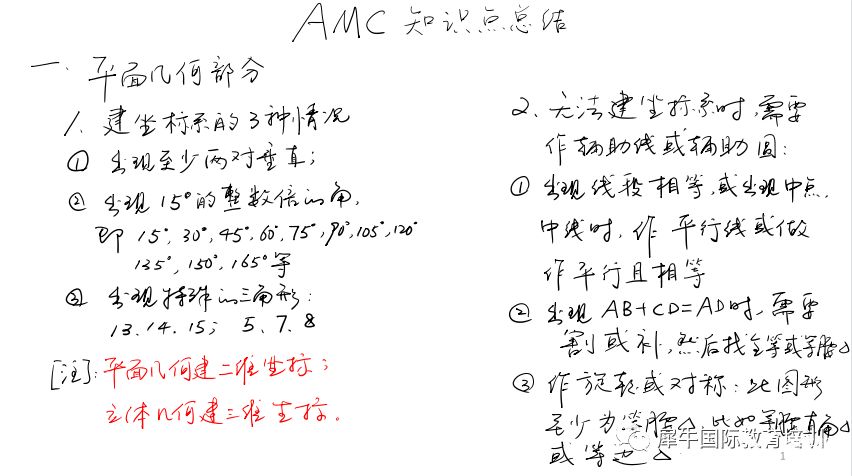 AMC 知识点总结
一. 平面几何部分
1. 建坐标系的3种情况
① 出现至少两对垂直;
② 出现15°的整数倍的角,
即 15°, 30°, 45°, 60°, 75°, 90°, 105°, 120°
135°, 150°, 165° 等
③ 出现特殊的三角形:
13. 14. 15; 5、7、8
[注]: 平面几何建二维坐标;
立体几何建三维坐标.
2、无法建坐标系时, 需要
作辅助线或辅助圆:
① 出现线段相等, 或出现中点,
中线时, 作平行线或做
作平行且相等
② 出现 AB+CD=AD时, 需要
割或补, 然后找全等或等腰△
③ 作旋转或对称: 此图形
至少为等腰△ 比如等腰直角△
或等边△
犀牛国际教育培训
1